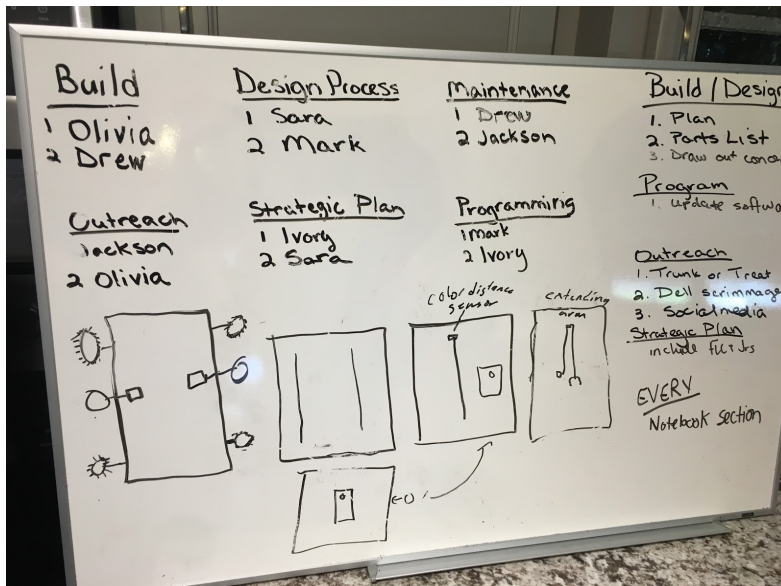 Build
1 Olivia
2 Drew
Design Process
1 Sara
2 Mark
Maintenance
1 Drew
2 Jackson
Build / Design
1. Plan
2. Parts List
3. Draw out conce
Program
1. update softwa
Outreach
Jackson
2 Olivia
Strategic Plan
1 Ivory
2 Sara
Programming
1 Mark
2 Ivory
Outreach
1. Trunk or Treat
2. Dell scrimmage
3. Social media
Strategic Plan
include
EVERY
Notebook section
color distance
sensor
extending
arm